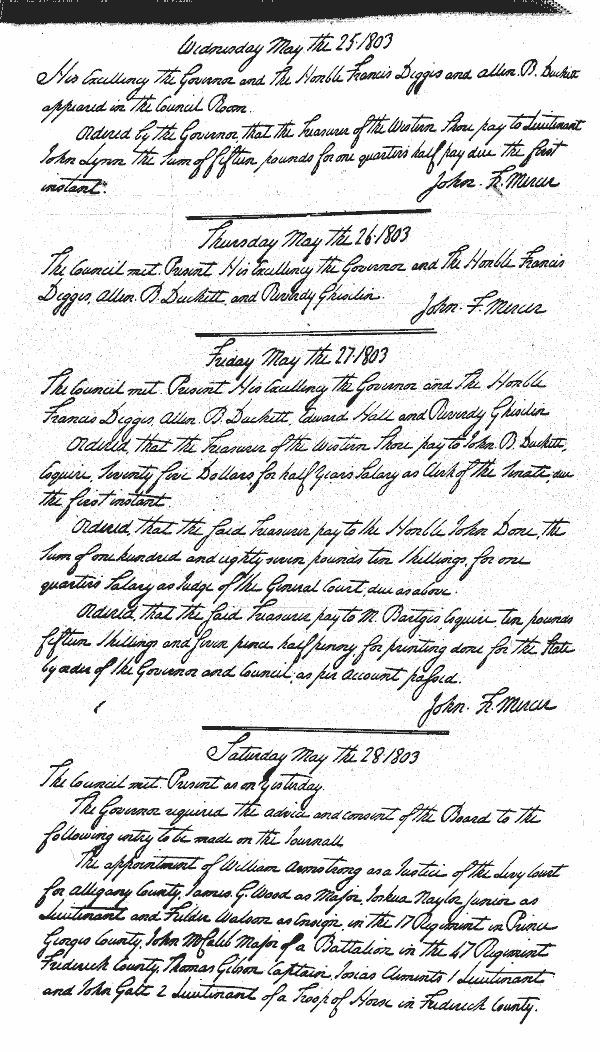 Wednesday May the 25. 1803
His Excellency the Governor and The Honble Francis Digges and Allen. B. Duckett
appeared in the Council Room.
Ordered by the Governor that the Treasurer of the Western Shore pay to Lieutenant
John Lynn the Sum of fifteen pounds for one quarter's half pay due the first
instant.
John. F. Mercer
Thursday May the 26. 1803
The Council met. Present His Excellency the Governor and The Honble Francis
Digges, Allen. B. Duckett, and Reverdy Ghiselin.
John. F. Mercer
Friday May the 27. 1803
The Council met. Present His Excellency the Governor and The Honble
Francis Digges, Allen B. Duckett, Edward Hall and Reverdy Ghiselin
Ordered, that the Treasurer of the Western Shore pay to John. B. Duckett,
Esquire, Seventy five Dollars for half Year's Salary as Clerk of the Senate due
the first instant.
Ordered, that the said Treasurer pay to the Honble John Done, the
Sum of one hundred and eighty seven pounds ten Shillings, for one
quarter's Salary as Judge of the General Court due as above.
Ordered, that the said Treasurer pay to M. Bartgis Esquire ten pounds
fifteen Shillings and seven pence half penny for printing done for the State
by order of the Governor and Council, as per Account passed.
John. F. Mercer
Saturday May the 28 1803
The Council met. Present as on Yesterday.
The Governor required the advice and consent of the Board to the
following entry to be made on the Journall
The appointment of William Armstrong as a Justice of the Levy Court
for Allegany County, James. G. Wood as Major, Joshua Naylor junior as
Lieutenant and Fielder Watson as Ensign, in the 17 Regiment in Prince
Georges County, John McCaleb Major of a Battalion in the 47 Regiment
Frederick County, Thomas Gibson Captain, Josias Clements 1 Lieutenant
and John Galt 2 Lieutenant of a Troop of Horse in Frederick County.